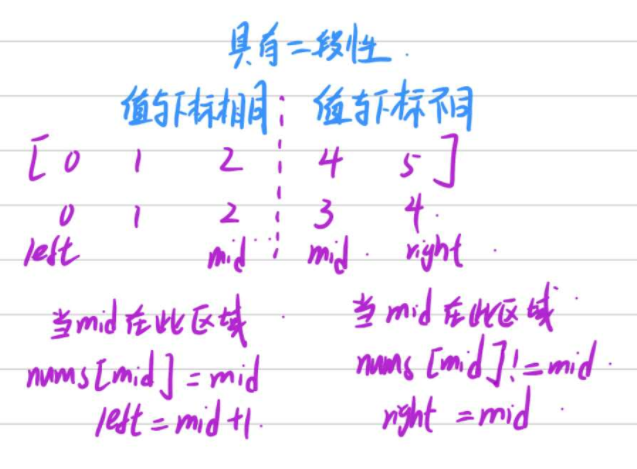 具有二段性.
值与下标相同 值与下标不同
[ 0 1 2 4 5 ]
0 1 2 3 4.
left mid mid. right.
当mid在此区域 当mid在此区域
nums[mid]=mid nums[mid]!=mid.
left=mid+1. right=mid.